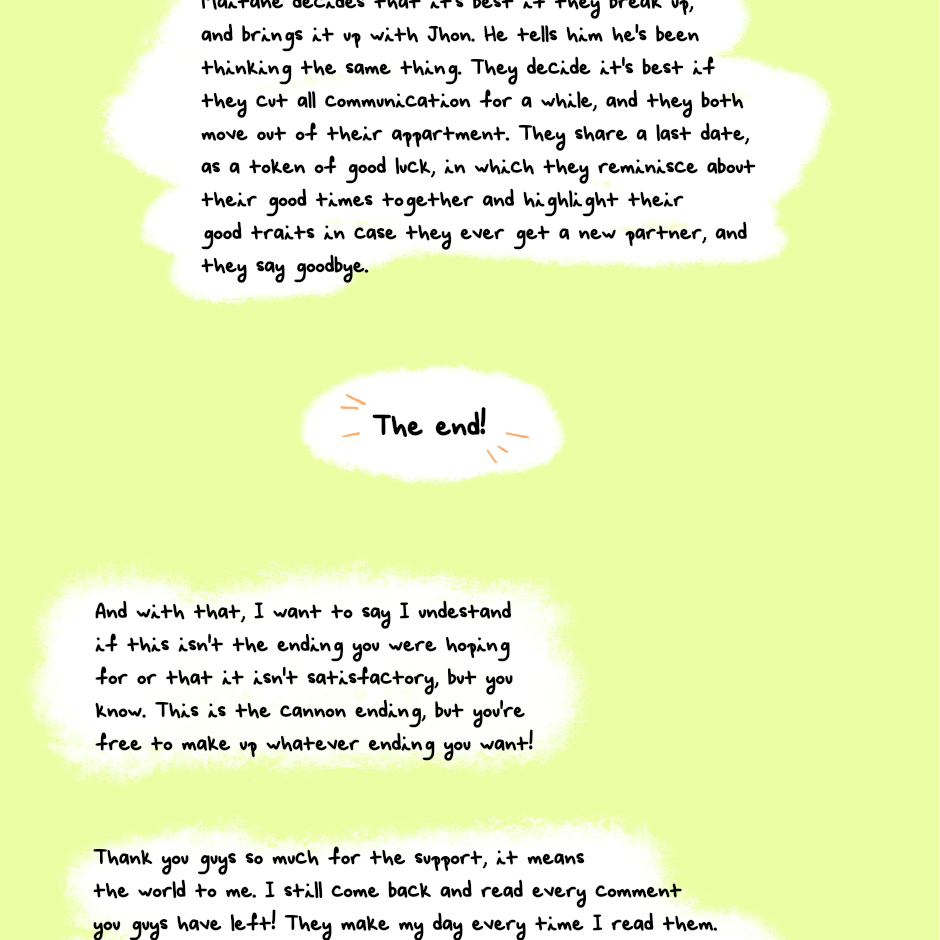 Maitane decides that it's best if they break up,
and brings it up with Jhon. He tells him he's been
thinking the same thing. They decide it's best if
they cut all communication for a while, and they both
move out of their appartment. They share a last date,
as a token of good luck, in which they reminisce about
their good times together and highlight their
good traits in case they ever get a new partner, and
they say goodbye.
The end!
And with that, I want to say I undestand
if this isn't the ending you were hoping
for or that it isn't satisfactory, but you
know. This is the cannon ending, but you're
free to make up whatever ending you want!
Thank you guys so much for the support, it means
the world to me. I still come back and read every comment
you guys have left! They make my day every time I read them.